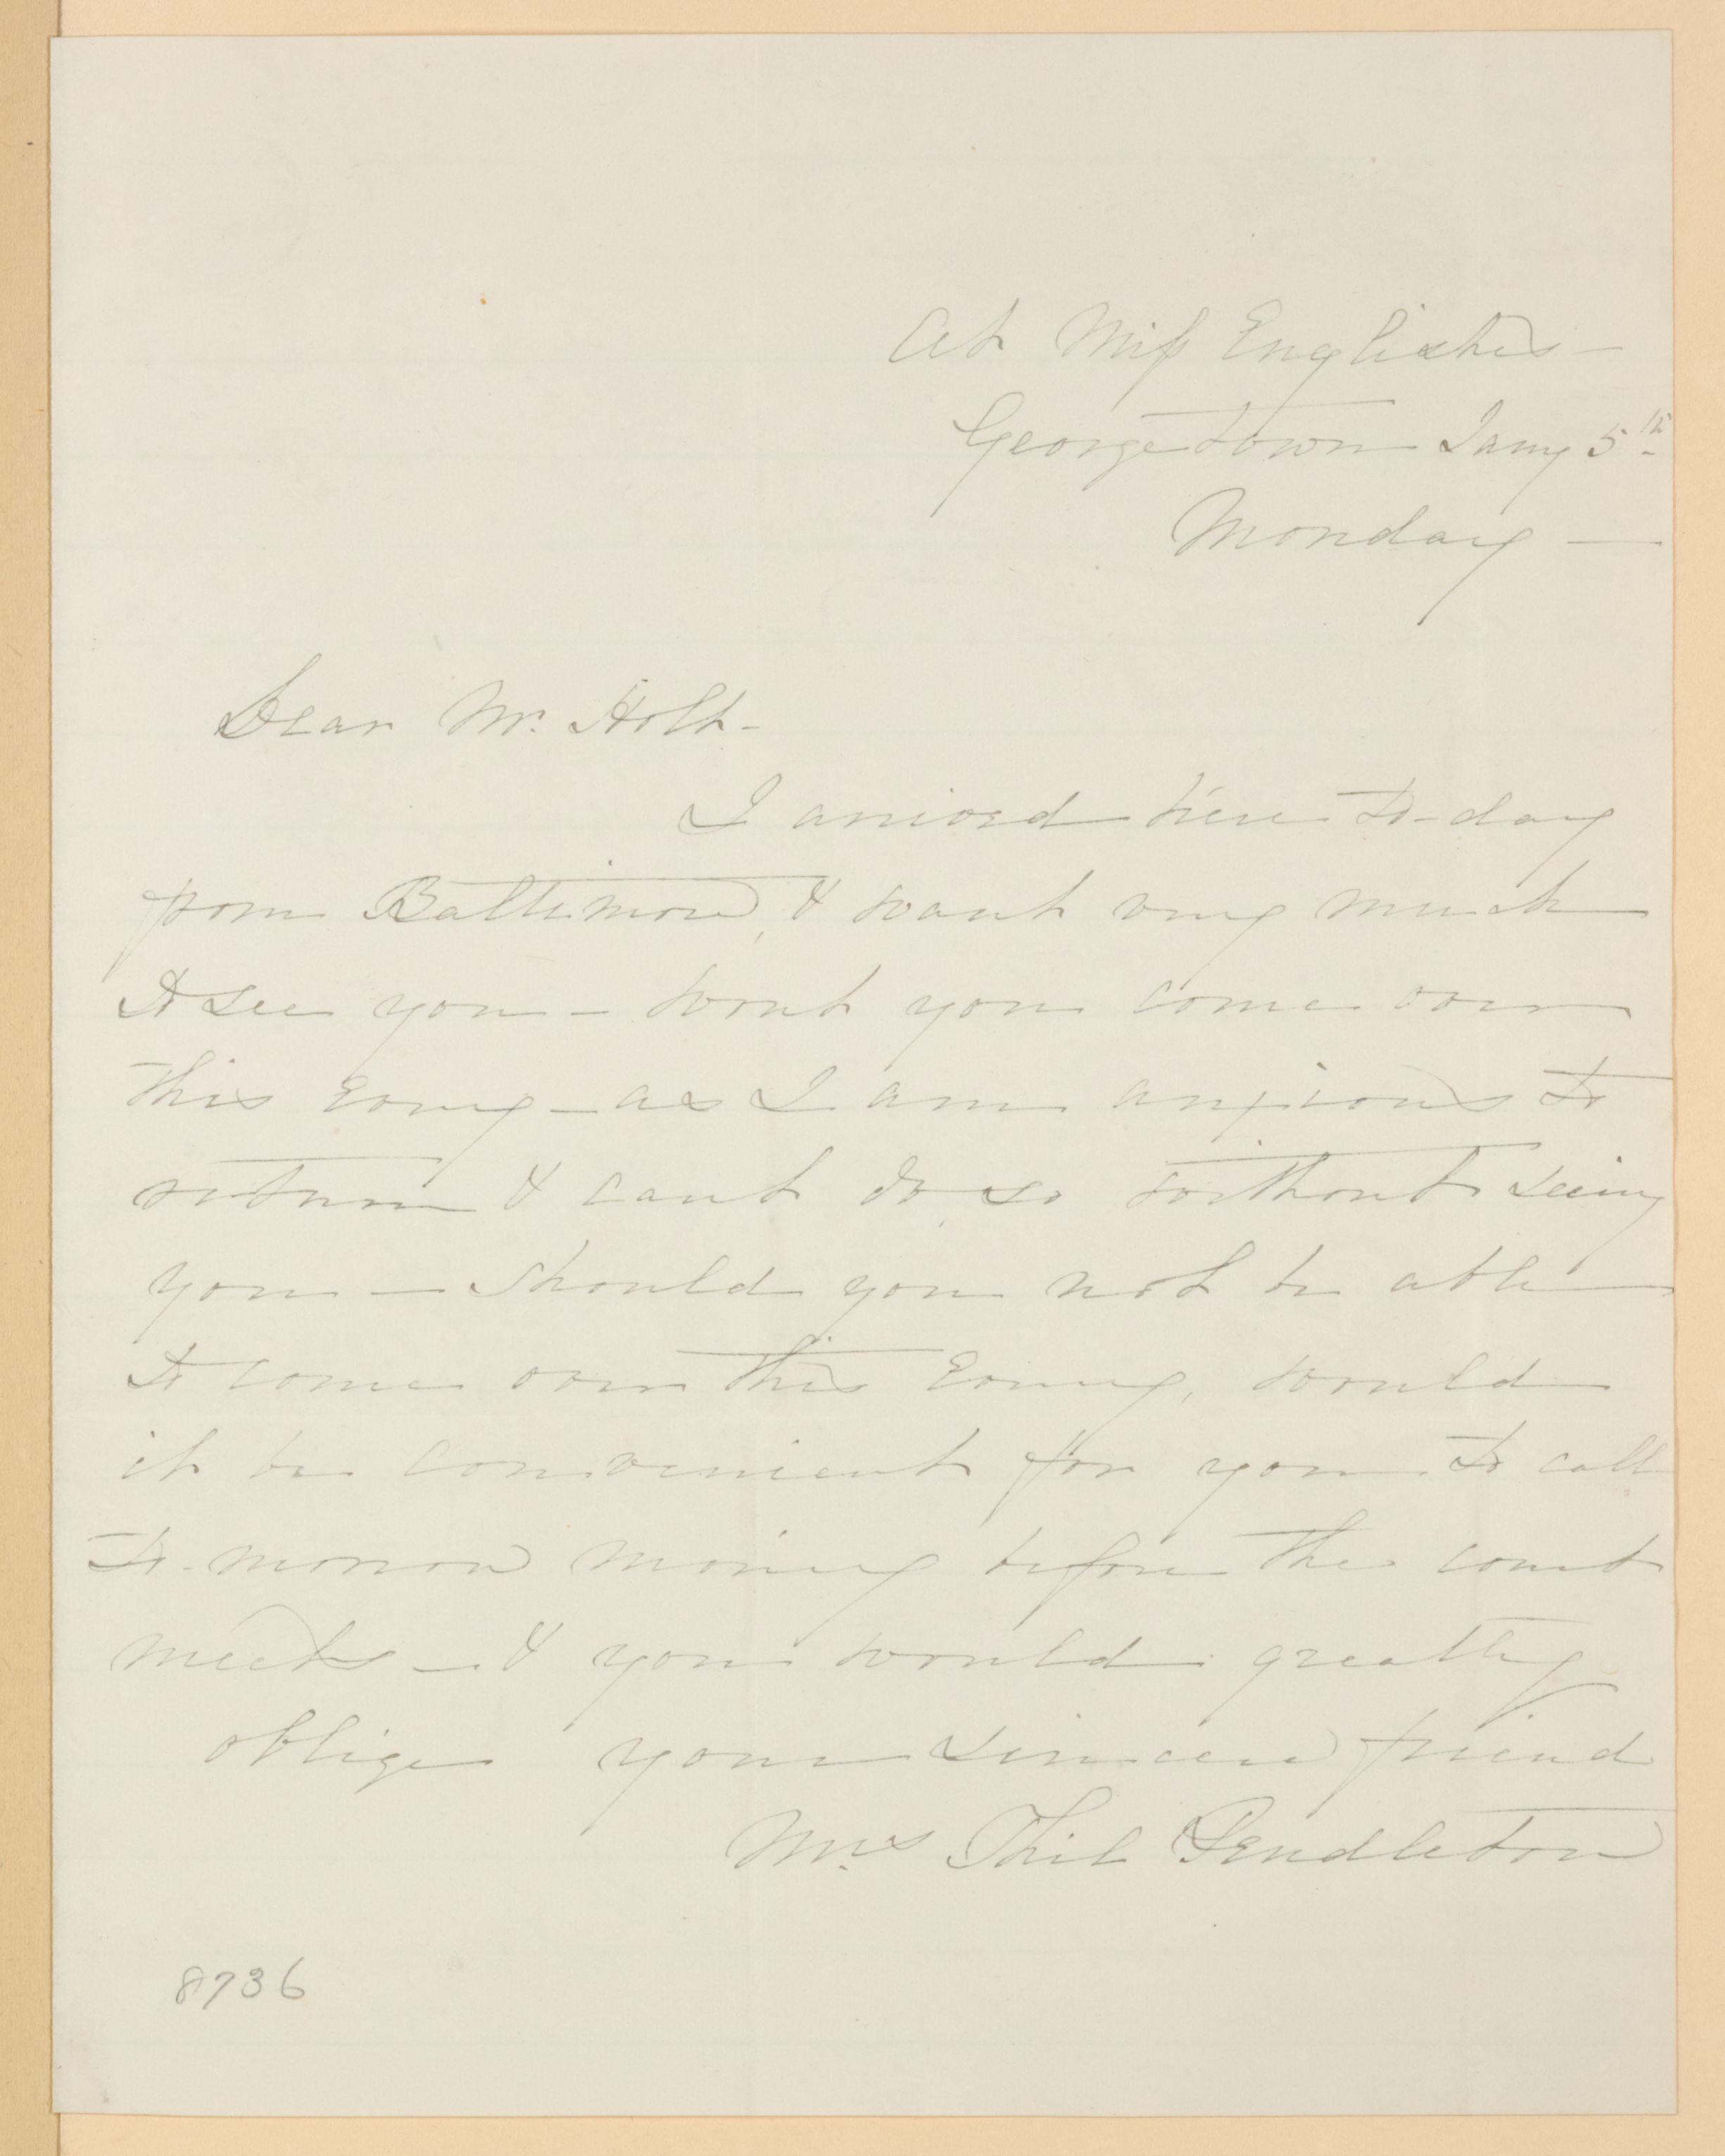 At Miss Englishes –
Georgetown Jany 5th
Monday —
Dear Mr. Holt –
I arrived here to-day
from Baltimore, & want very much
to see you – wont you come over
this Eveng – as I am anxious to
return & cant do so without seeing
you – Should you not be able
to come over this Eveng, would
it be convenient for you to call
to-morrow morning before the court
meets – & you would greatly
oblige your sincere friend
Mrs Phil Pendleton
8736